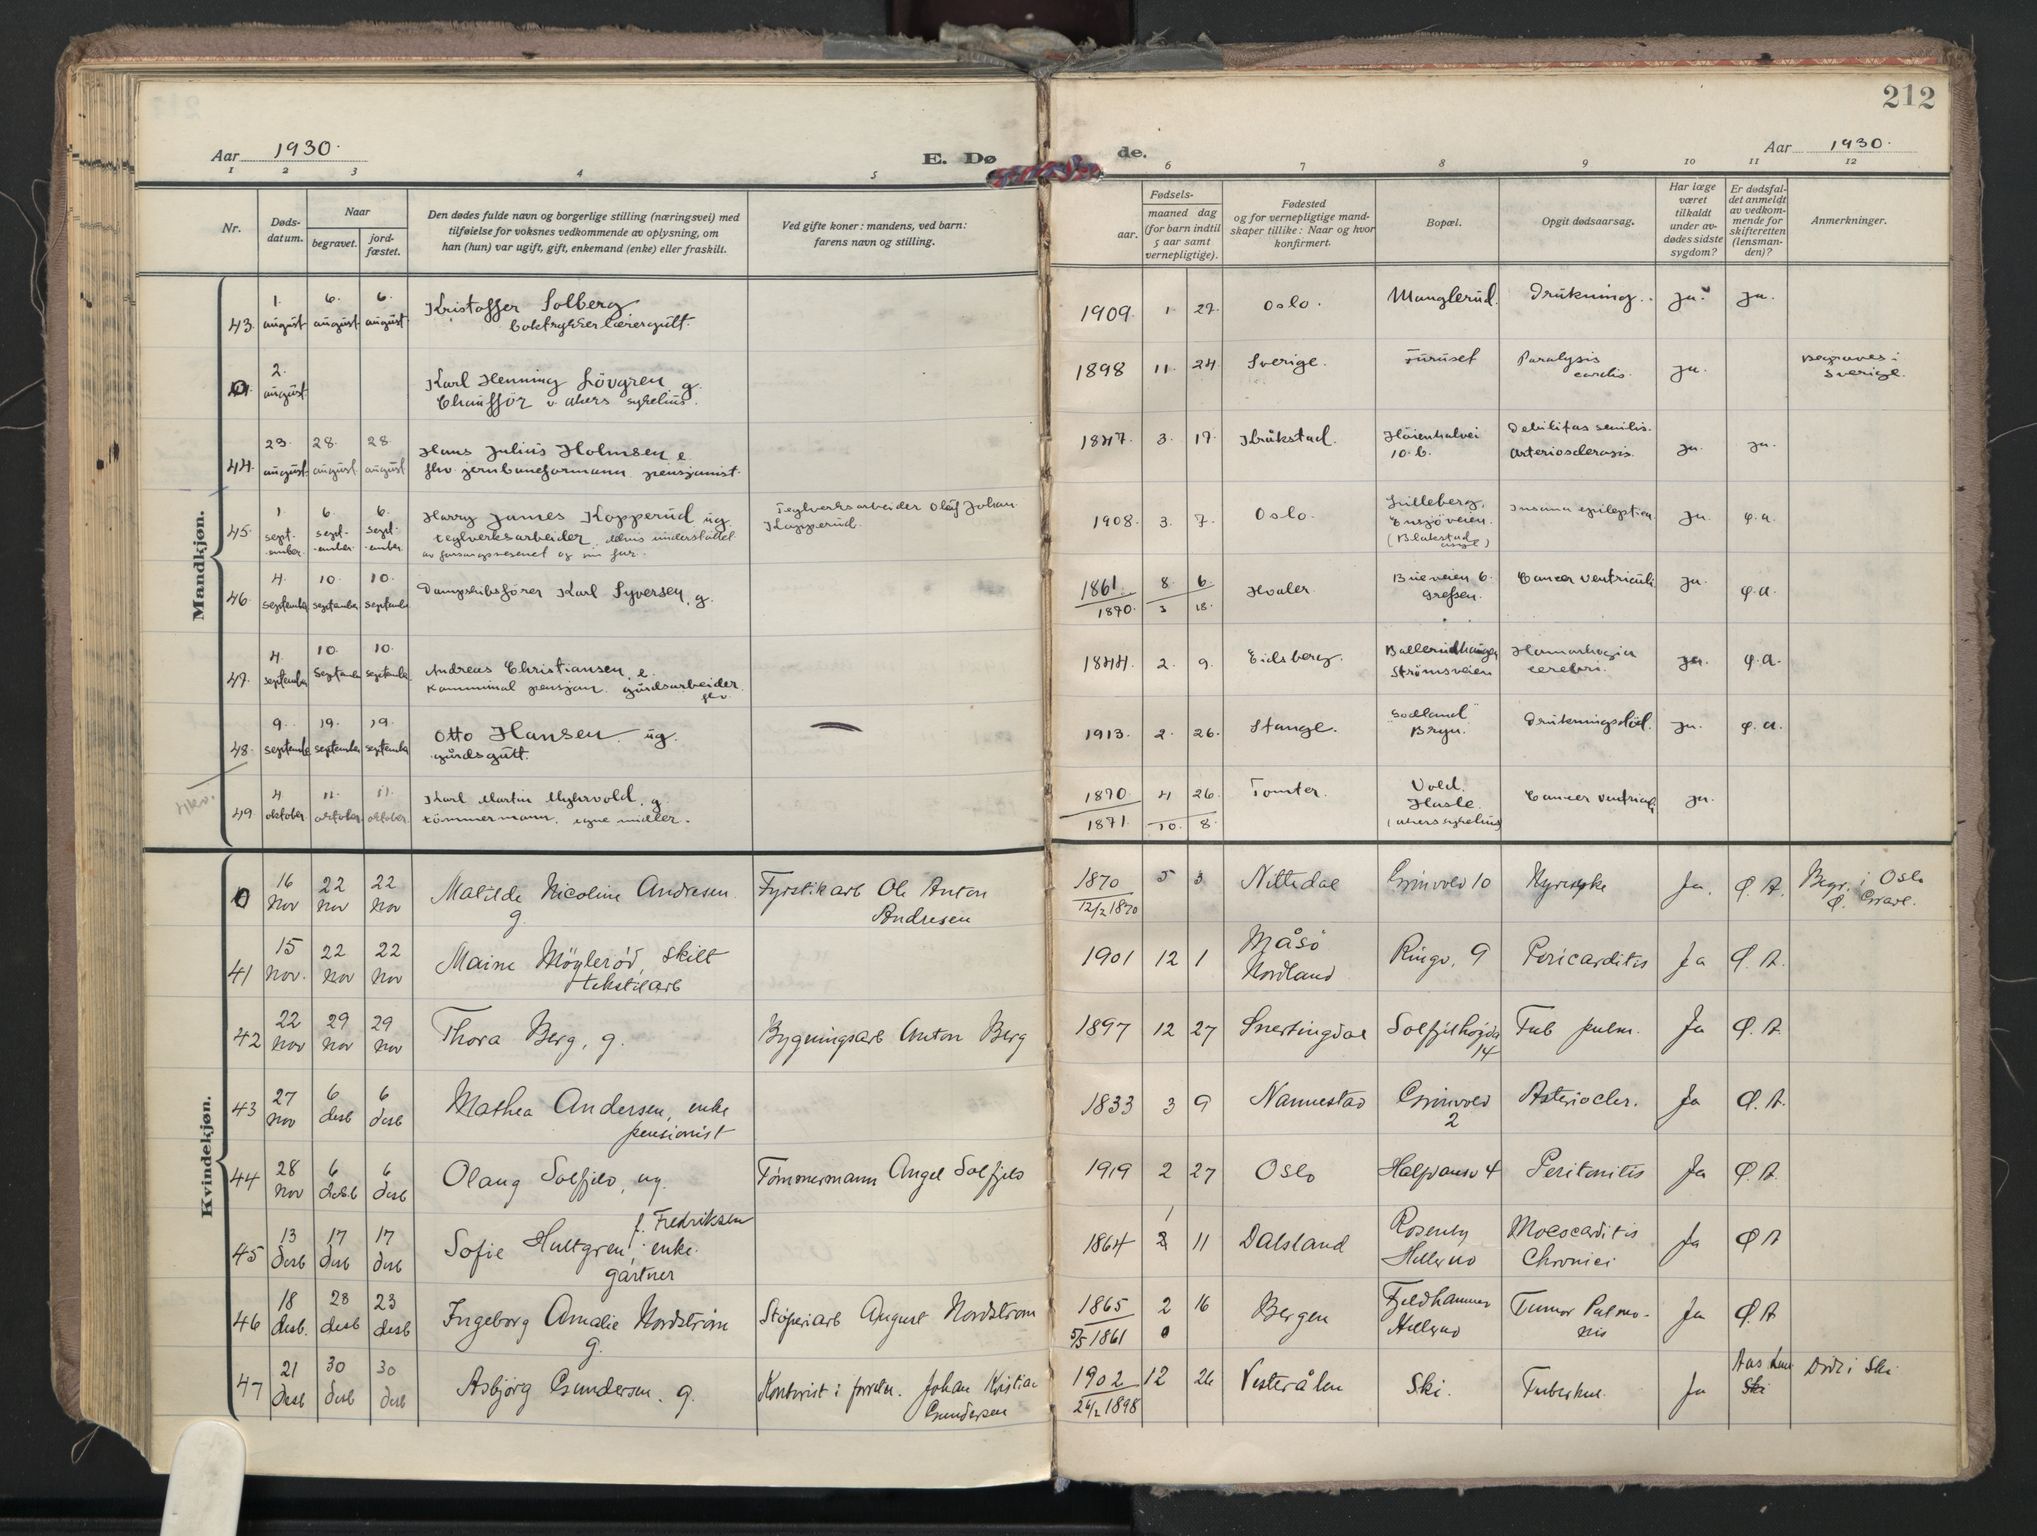 212
Aar 1930.
E. Dø
de.
Aar 1930.
1 2 3 4 5 6 7 8 9 10 11 12
Nr.
Døds-
datum.
Naar
begravet.
jord-
fæstet.
Den dødes fulde navn og borgerlige stilling (næringsvei) med
tilføielse for voksnes vedkommende av oplysning, om
han (hun) var ugift, gift, enkemand (enke) eller fraskilt.
Ved gifte koner: mandens, ved barn:
farens navn og stilling.
Fødsels-
aar.
maaned dag
(for barn indtil
5 aar samt
vernepligtige).
Fødested
og for vernepligtige mand-
skaper tillike: Naar og hvor
konfirmert.
Bopæl.
Opgit dødsaarsag.
Har læge
været
tilkaldt
under av-
dødes sidste
sygdom?
Er dødsfal-
det anmeldt
av vedkom-
mende for
skifteretten
(lensman-
den)?
Anmerkninger.
Mandkjøn.
43. 1. august 6. august 6. august Kristoffer Solberg 1909. 1. 27. Oslo. Manglerud. Drukning. ja. ja.
boktrykkerlærergutt.
0 2. august Karl Henning Lövgren g. 1898 11. 24. Sverige. Furuset Paralysis cordis. ja. Begraves i Sverige.
Chauffør v. akers sykehus.
44. 23. august 28. august 28. august Hans Julius Holmsen e. 1847. 3. 17. Kråkstad. Høienhalvei 10. b. Debilitas senilis. Arteriosclerosis. ja. ja.
fhv. jernbaneformann. pensjonist.
45. 1. sept-ember 6. sept-ember. 6. sept-ember. Harry James Kopperud ug. Teglverksarbeider Olaf Johan Kopperud. 1908. 3. 7. Oslo. Lilleberg, Ensjöveien. (Blakstad asyl) Insania epileptica ja. φ.a.
teglverksarbeider, delvis understøttet
av forsorgsvesenet og sin far.
46. 4. september 10. september 10. september Dampskibsfører Karl Syversen, g. 1861. 8. 6. Hvaler. Bueveien 6. Grefsen. Cancer ventriculi ja. φ.a.
1870. 3 18.
47. 4. september 10. september 10. september Andreas Christiansen, e. 1844. 2. 9. Eidsberg. Ballerudhaugen Strømsveien Hæmorhagia cerebri. ja. φ.a.
Kommunal pensjon. gårdsarbeider fhv.
48. 9. september 19. september 19. september Otto Hansen. ug. — 1913. 2. 26. Stange. "Sodland" Bryn. Drukningsdöd. ja. φ.a.
gårdsgutt.
4kv.
49. 4 oktober. 11. oktober 11. oktober. Karl Martin Myhrvold, g 1870. 4 26. Tomter. Vold. Hasle. (akers sykehus) Cancer ventriculi ja.
tömmermann. egne midler. 1871. 10. 8.
Kvindekjøn.
0 16 Nov 22 Nov 22 Nov Matilde Nicoline Andresen. g. Fyrstikarb Ole Anton Andresen 1870 12/2 1870 5 3 Nittedal Grønvold 10 Nyresyke Ja. Ø. A. Begr. i Oslo Ø. Gravl.
41 15 Nov. 22 Nov 22 Nov Maine Möylerød, skilt tekstilarb 1901 12 1 Måsö Nordland Ringv. 9 Pericarditis Ja Ø. A.
42 22 Nov 29 Nov 29 Nov Thora Berg, g. Bygningsarb Anton Berg 1897 12 27 Snertingdal Solfjellhøgda 14 Tub pulm. Ja Ø. A.
43 27 Nov 6 desb 6 desb Mathea Andersen, enke pensionist 1833 3 9 Nannestad Grønvold 2 Asterioscler. Ja Ø. A.
44 28 Nov 6 desb 6 desb Olaug Solfjeld, ug. Tømmermann Angel Solfjeld 1919 2 27 Oslo Halfdansv 4 Peritonitis Ja Ø. A.
45 13 desb 17 desb 17 desb Sofie Hultgren, f. Fredriksen enke. gartner 1864 1 2 11 Dalsland Rosenly Hellerud Moescarditis Chronici Ja Ø A
46 18 desb. 23 desb 23 desb Ingeborg Amalie Nordstrøm g. Støperiarb August Nordstrøm 1865 5/5 1861 2 0 16 Bergen Fjeldhammer Hellerud Tumor Pulmonis Ja Ø. A
47 21 desb 30 desb 30 desb Asbjörg Gundersen. g. Kontorist i forretn. Johan Kristian Gundersen 1902 26/2 1898 12 26 Vesterålen Ski. Tuberkul. Ja Aas Ski Död i Ski